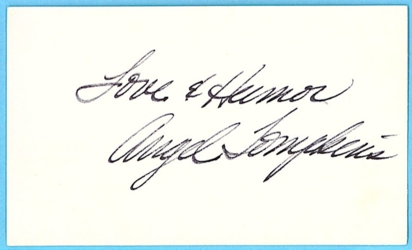 Love & Humor
Angel Tompkins